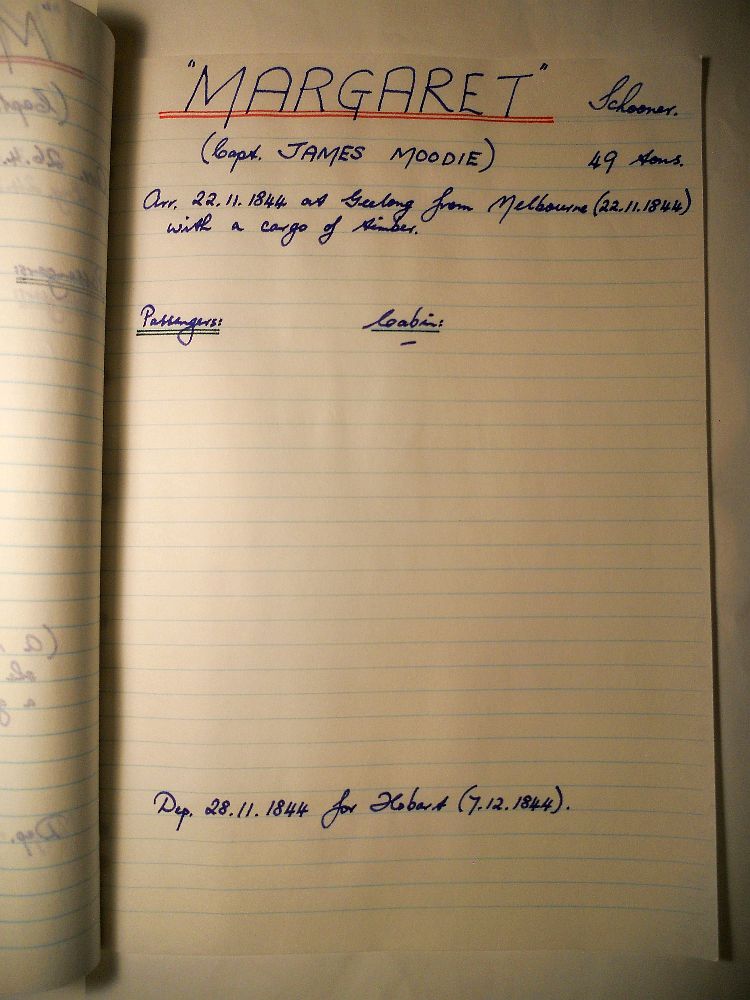 "MARGARET" Schooner.
(Capt. JAMES MOODIE) 49 tons.
Arr. 22.11.1844 at Geelong from Melbourne (22.11.1844)
with a cargo of timber.
Passengers: Cabin:
–
Dep. 28.11.1844 for Hobart (7.12.1844).